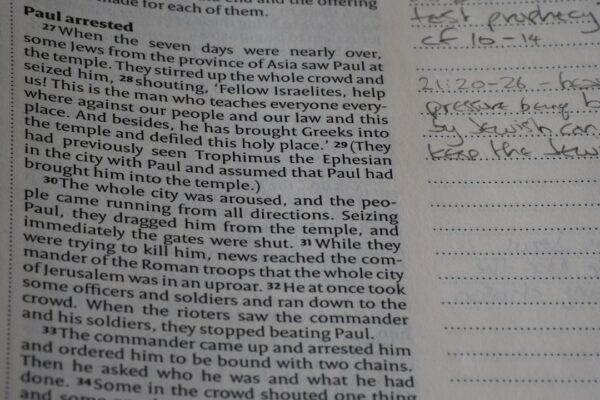 made for each of them.
Paul arrested
27 When the seven days were nearly over,
some Jews from the province of Asia saw Paul at
the temple. They stirred up the whole crowd and
seized him, 28 shouting, ‘Fellow Israelites, help
us! This is the man who teaches everyone every-
where against our people and our law and this
place. And besides, he has brought Greeks into
the temple and defiled this holy place.’ 29 (They
had previously seen Trophimus the Ephesian
in the city with Paul and assumed that Paul had
brought him into the temple.)
30 The whole city was aroused, and the peo-
ple came running from all directions. Seizing
Paul, they dragged him from the temple, and
immediately the gates were shut. 31 While they
were trying to kill him, news reached the com-
mander of the Roman troops that the whole city
of Jerusalem was in an uproar. 32 He at once took
some officers and soldiers and ran down to the
crowd. When the rioters saw the commander
and his soldiers, they stopped beating Paul.
33 The commander came up and arrested him
and ordered him to be bound with two chains.
Then he asked who he was and what he had
done. 34 Some in the crowd shouted one thing
and some
prophecy
cf 10-14
21:20-26 -
pressure being
by Jewish
keep the